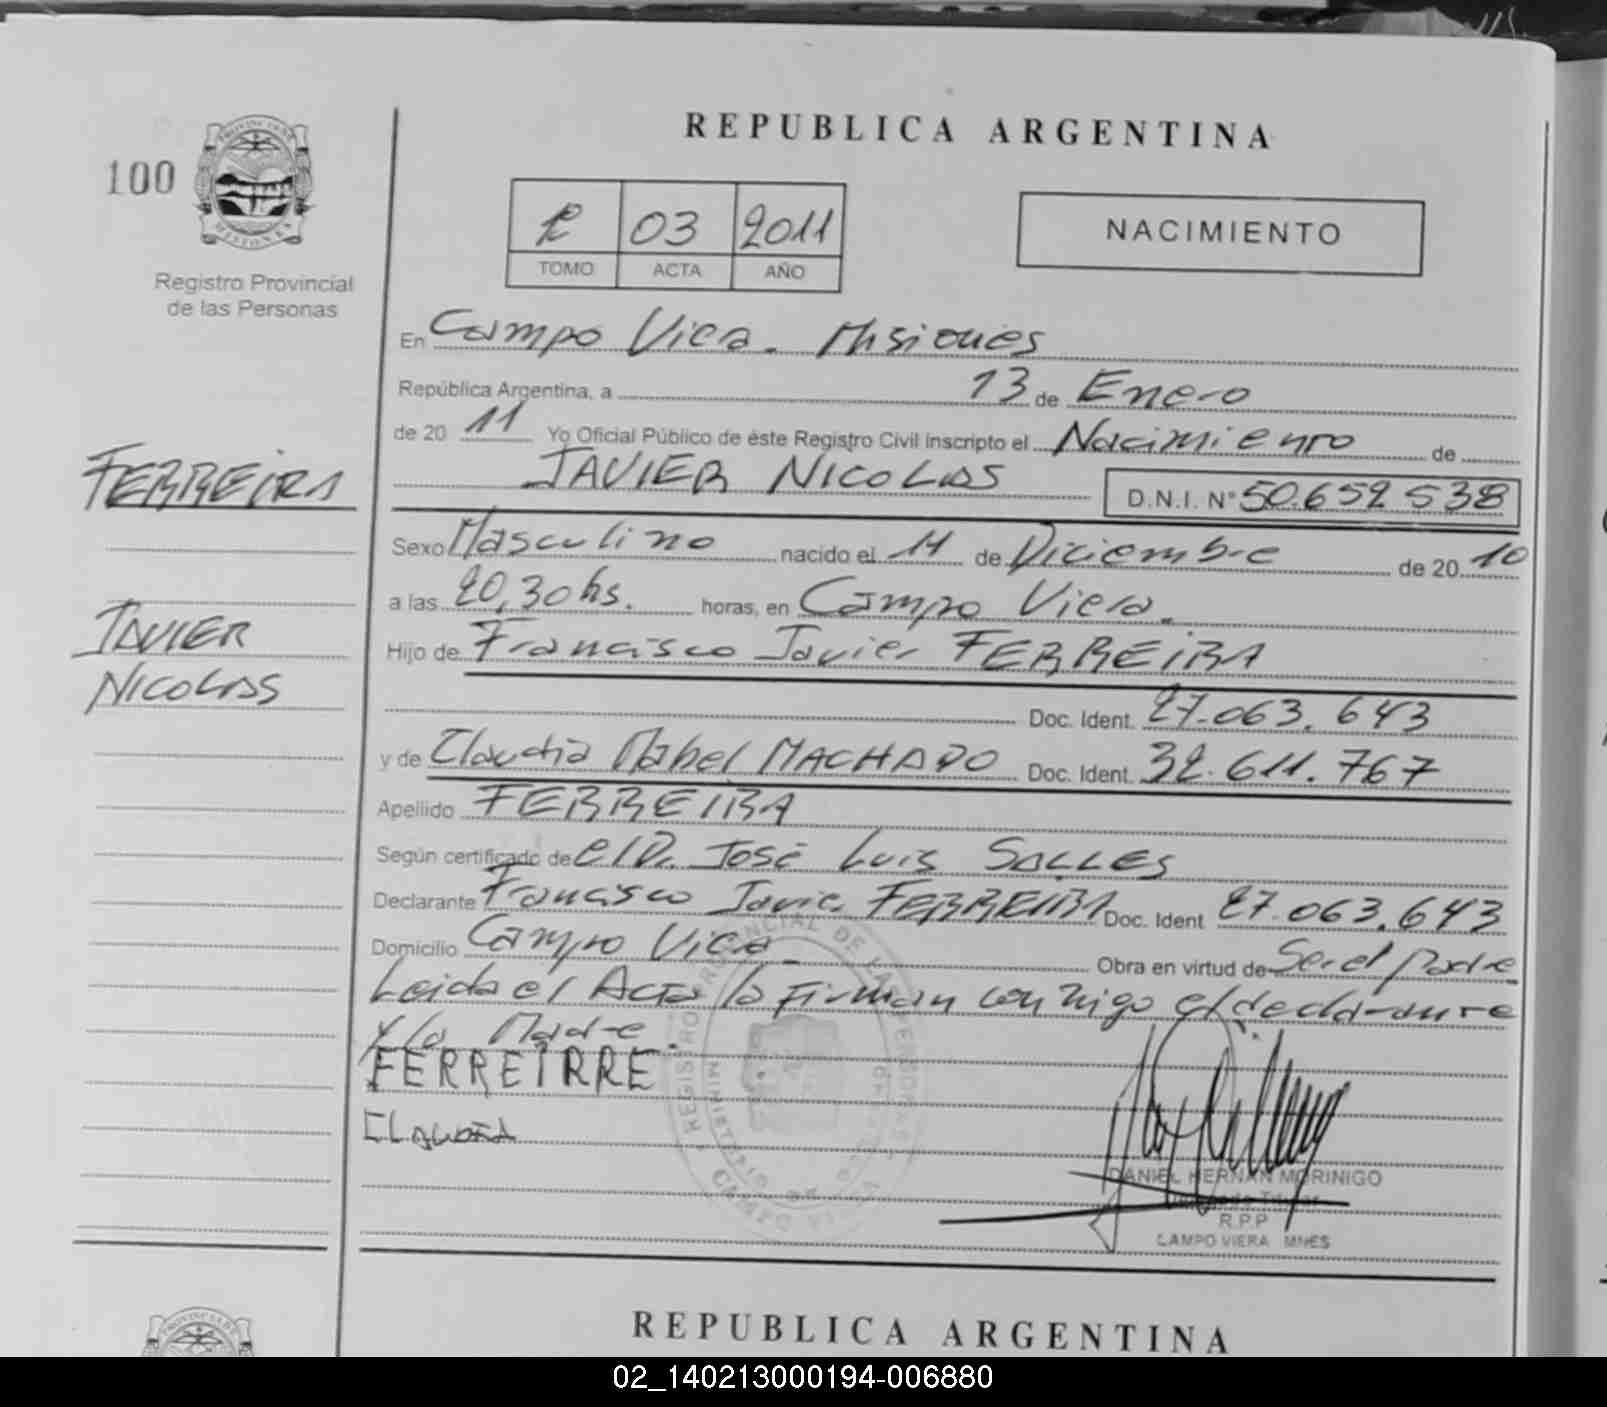 REPUBLICA ARGENTINA
100
PROVINCIA DE
MISIONES
Registro Provincial
de las Personas
03 2011
TOMO ACTA AÑO
NACIMIENTO
En Campo Viera. Misiones
República Argentina, a 13 de Enero
de 20 11 Yo Oficial Público de éste Registro Civil inscripto el Nacimiento de
JAVIER NICOLAS D.N.I. N° 50.652538
FERREIRA
Sexo Masculino nacido el 11 de Diciembre de 20 10
a las 20,30 hs. horas, en Campo Viera.
JAVIER
NICOLAS
Hijo de Francisco Javier FERREIRA
Doc. Ident. 27.063.643
y de Claudia Mabel MACHADO Doc. Ident. 32.611.767
Apellido FERREIRA
Según certificado de el Dr. José Luis SALLES
Declarante Francisco Javier FERREIRA Doc. Ident 27.063.643
Domicilio Campo Viera Obra en virtud de Ser el Padre
Leida el Acta la Firman conmigo el declarante
y la Madre.
FERREIRRE
CLAUDIA
DANIEL HERNAN MORINIGO
R.P.P
CAMPO VIERA MNES
REPUBLICA ARGENTINA
02_140213000194-006880